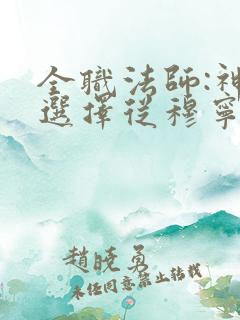 全職法師:神
選擇從穆寧
趙曉勇
未任同意禁止轉載